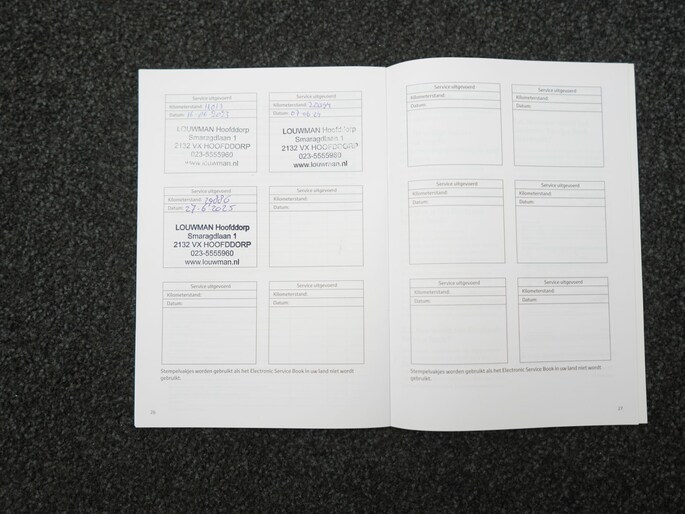 Service uitgevoerd
Kilometerstand:
Datum:
LOUWMAN Hoofddorp
Smaragdlaan 1
2132 VX HOOFDDORP
023-5555960
www.louwman.nl
Service uitgevoerd
Kilometerstand:
Datum: 07-06-24
LOUWMAN Hoofddorp
Smaragdlaan 1
2132 VX HOOFDDORP
023-5555960
www.louwman.nl
Service uitgevoerd
Kilometerstand:
Datum: 27-6-2025
LOUWMAN Hoofddorp
Smaragdlaan 1
2132 VX HOOFDDORP
023-5555960
www.louwman.nl
Service uitgevoerd
Kilometerstand:
Datum:
Service uitgevoerd
Kilometerstand:
Datum:
Service uitgevoerd
Kilometerstand:
Datum:
Stempelvakjes worden gebruikt als het Electronic Service Book in uw land niet wordt
gebruikt.
26
Service uitgevoerd
Kilometerstand:
Datum:
Service uitgevoerd
Kilometerstand:
Datum:
Service uitgevoerd
Kilometerstand:
Datum:
Service uitgevoerd
Kilometerstand:
Datum:
Service uitgevoerd
Kilometerstand:
Datum:
Service uitgevoerd
Kilometerstand:
Datum:
Stempelvakjes worden gebruikt als het Electronic Service Book in uw land niet wordt
gebruikt.
27